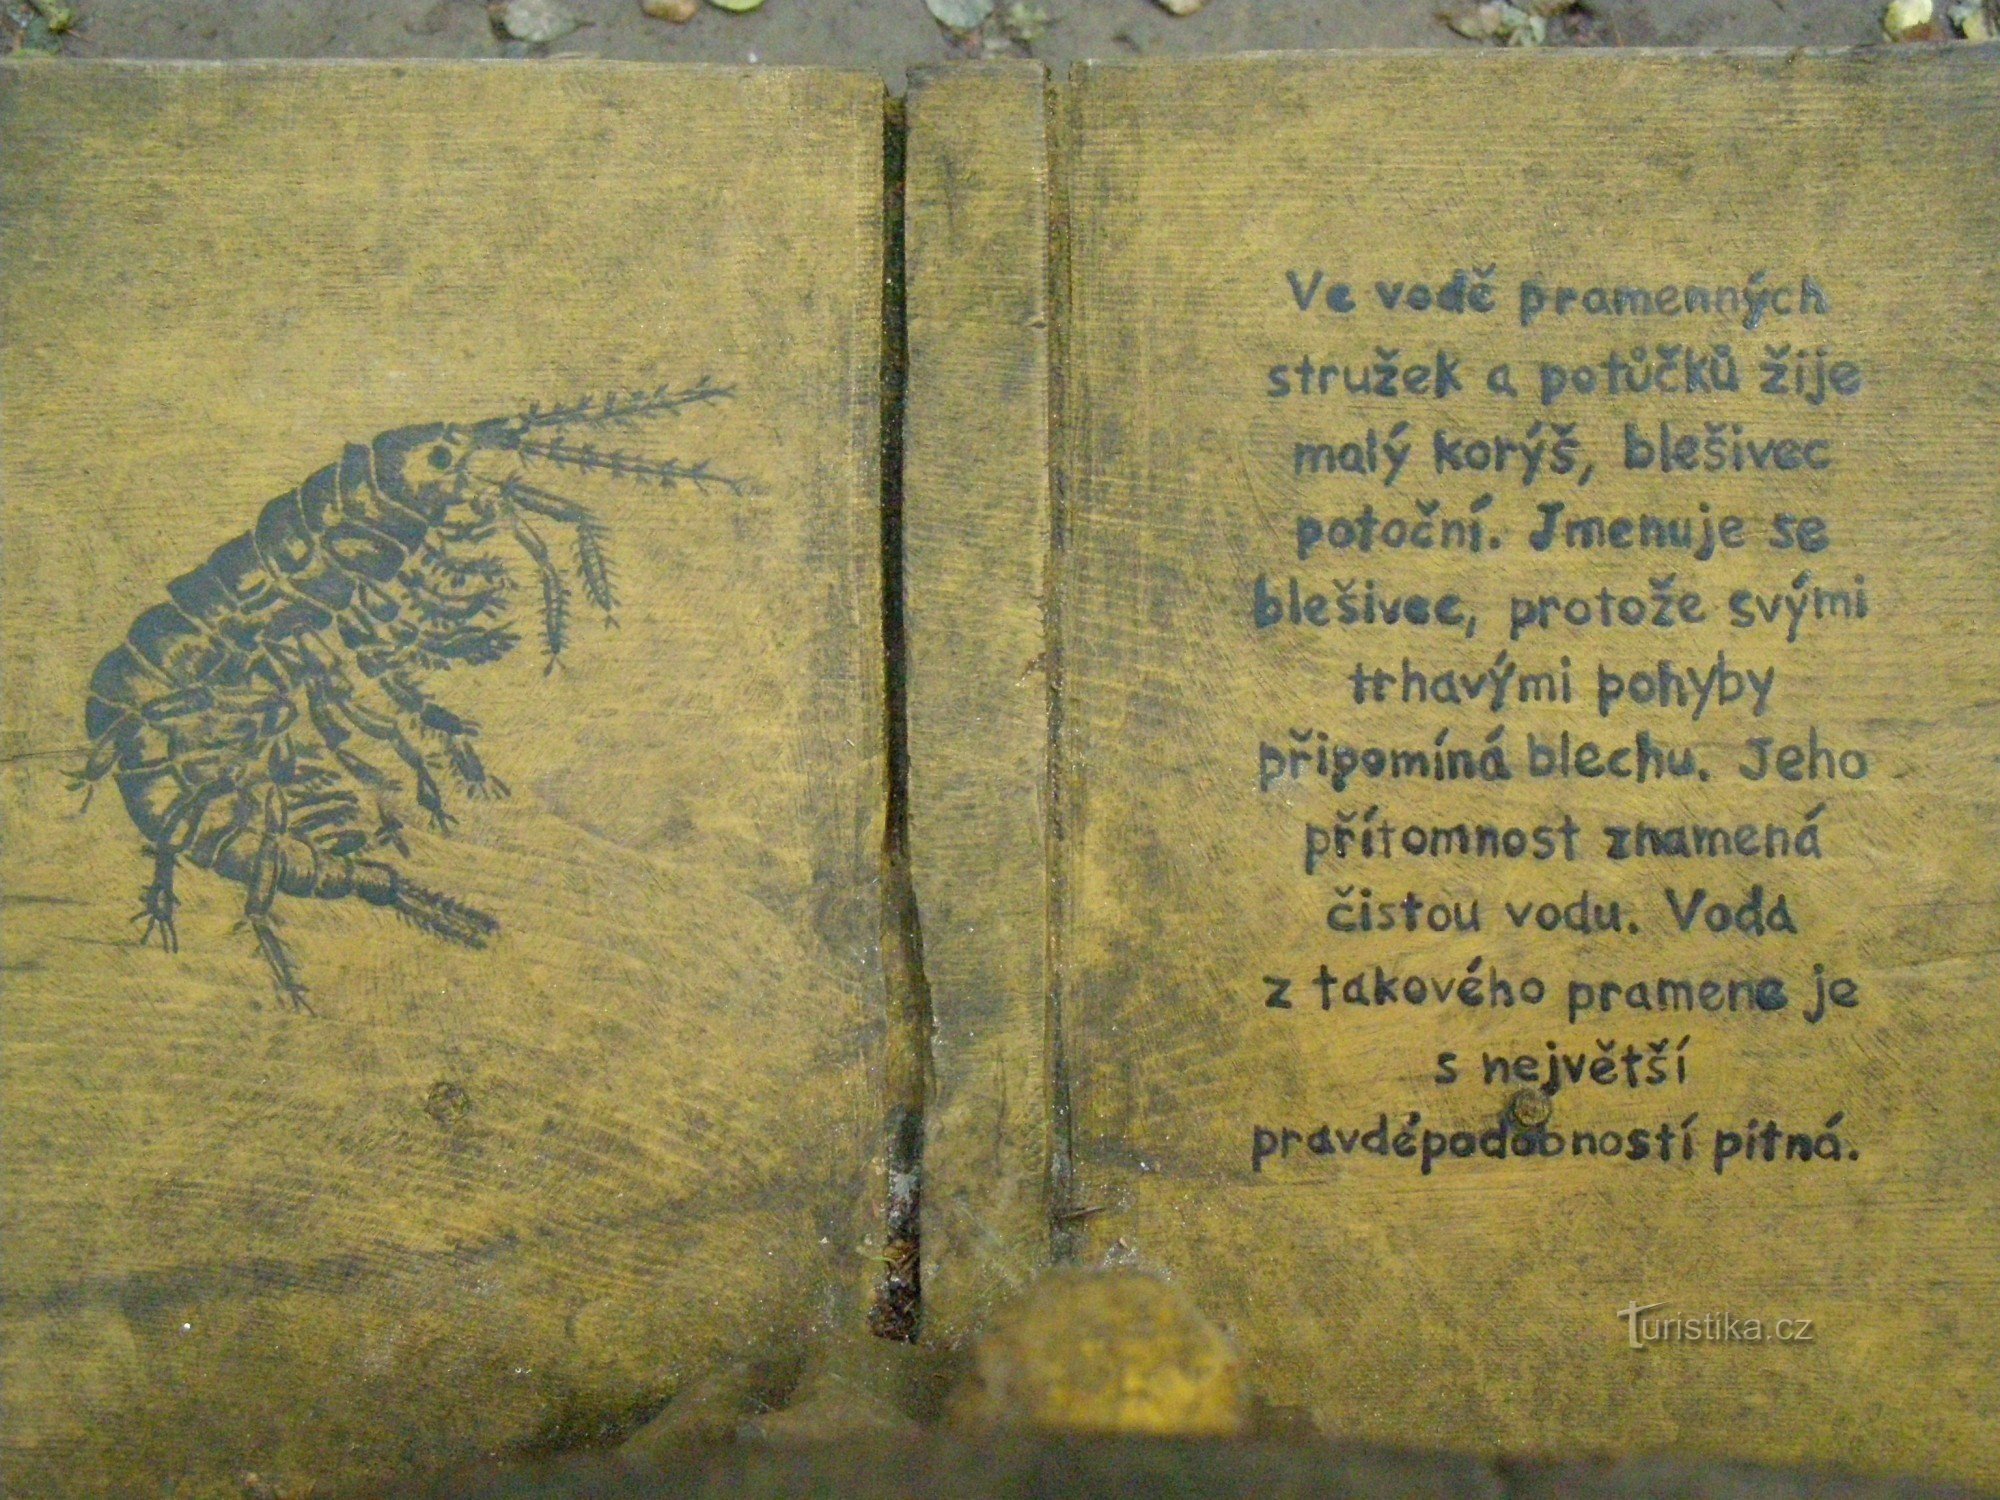 Ve vodě pramenných
stružek a potůčků žije
malý korýš, blešivec
potoční. Jmenuje se
blešivec, protože svými
trhavými pohyby
připomíná blechu. Jeho
přítomnost znamená
čistou vodu. Voda
z takového pramene je
s největší
pravděpodobností pitná.
Turistika.cz